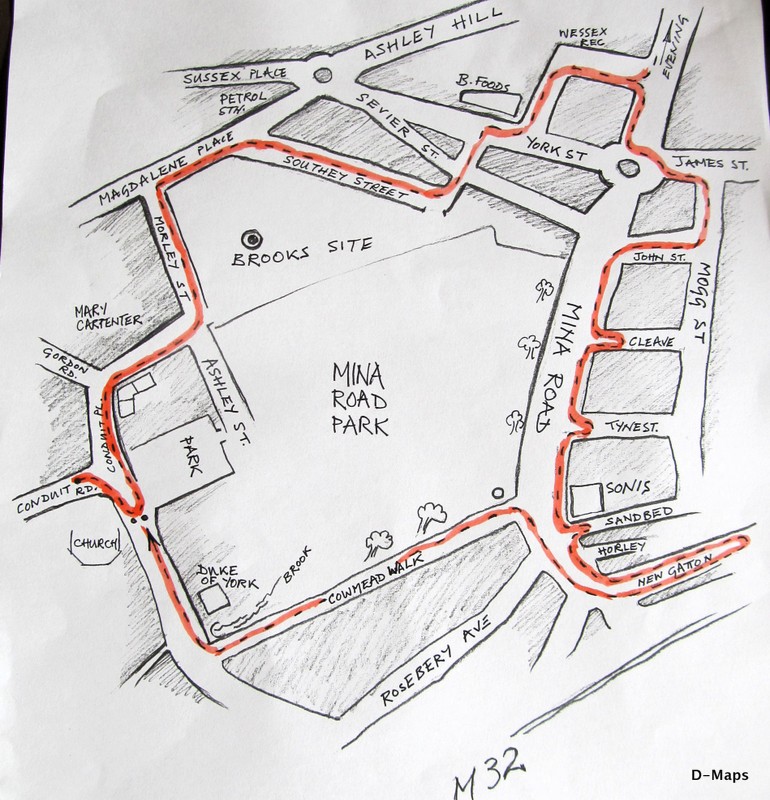 ASHLEY HILL
WESSEX
REC
EVENING
SUSSEX PLACE
B. FOODS
PETROL
STN.
SEVIER ST.
YORK ST
MAGDALENE PLACE
SOUTHEY STREET
JAMES ST.
MORLEY ST
BROOKS SITE
JOHN ST.
MOGG ST
MARY
CARTENTER
MINA ROAD
CLEAVE
GORDON
RD.
ASHLEY ST.
MINA
ROAD
PARK
CONDUIT PL.
PARK
TYNEST.
CONDUIT RD.
SONIS
SANDBED
CHURCH
HORLEY
DUKE
OF YORK
BROOK
COWMEAD WALK
NEW GATTON
ROSEBERY AVE
M32
D-Maps